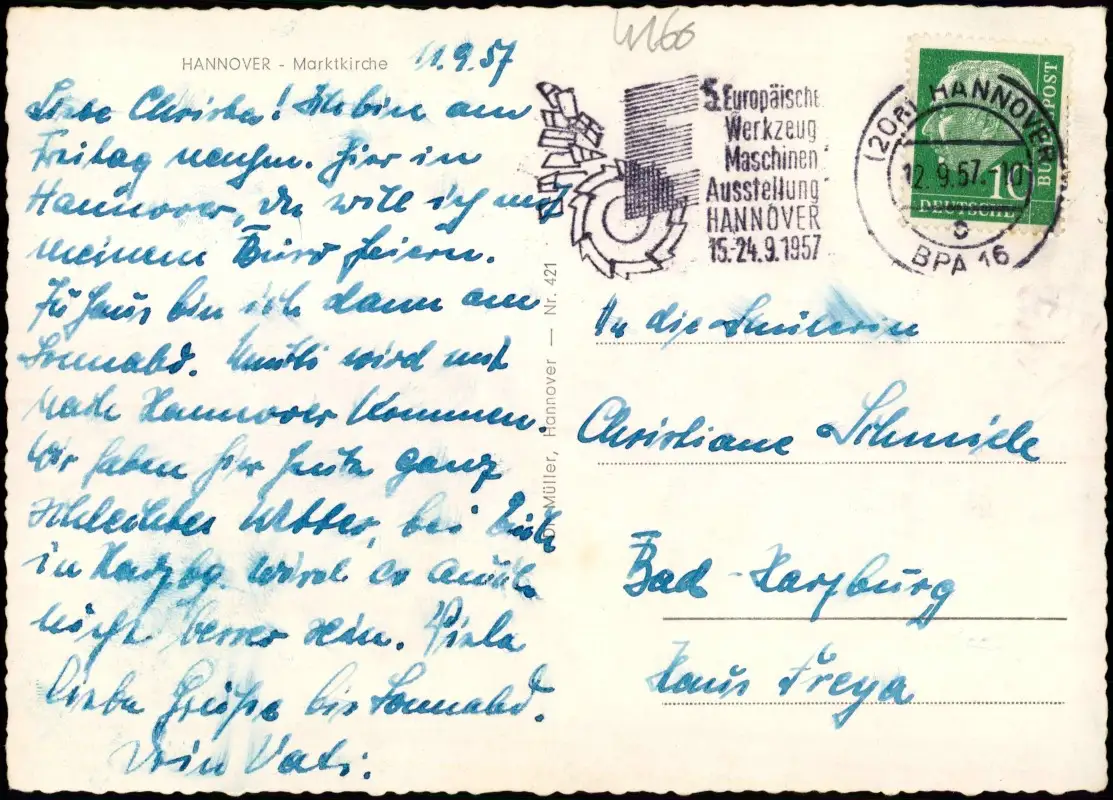 4166
HANNOVER - Marktkirche
11.9.57
Liebe Christa! Ich bin am
Freitag noch hier in
Hannover, da will ich mit
meinem Büro feiern.
Zu Haus bin ich dann am
Sonnabd. Mutti wird mit
nach Hannover kommen.
Wir haben hier heute ganz
schlechtes Wetter, bei Euch
in Harzbg. wird es auch
nicht besser sein. Viele
liebe Grüße bis Sonnabd.
Dein Vati.
Müller, Hannover — Nr. 421
5. Europäische
Werkzeug
Maschinen
Ausstellung
HANNOVER
15.-24.9.1957
(20a) HANNOVER
12.9.57.-10
BPA 16
DEUTSCHE
BUNDESPOST
10
An die Schülerin
Christiane Schmiele
Bad-Harzburg
Haus Freya